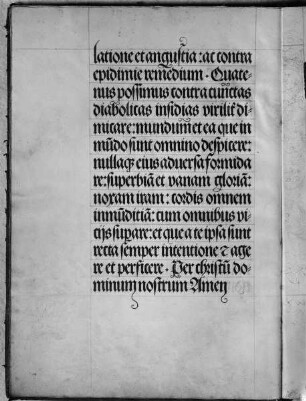 latione et angustia: ac contra
epidimie remedium. Quate-
nus possimus contra cunctas
diabolicas insidias virilit̉ di-
micare: mundum et ea que in
mūdo sunt omnino despicere:
nullaqꝫ eius aduersa formida
re: superbiā et vanam gloriā:
noxam iram: cordis omnem
inmūditiā: cum omnibus vi-
tijs supare: et que a te ipsa sunt
recta semper intentione ⁊ age
re et perficere. Per christū do-
minum nostrum Amen